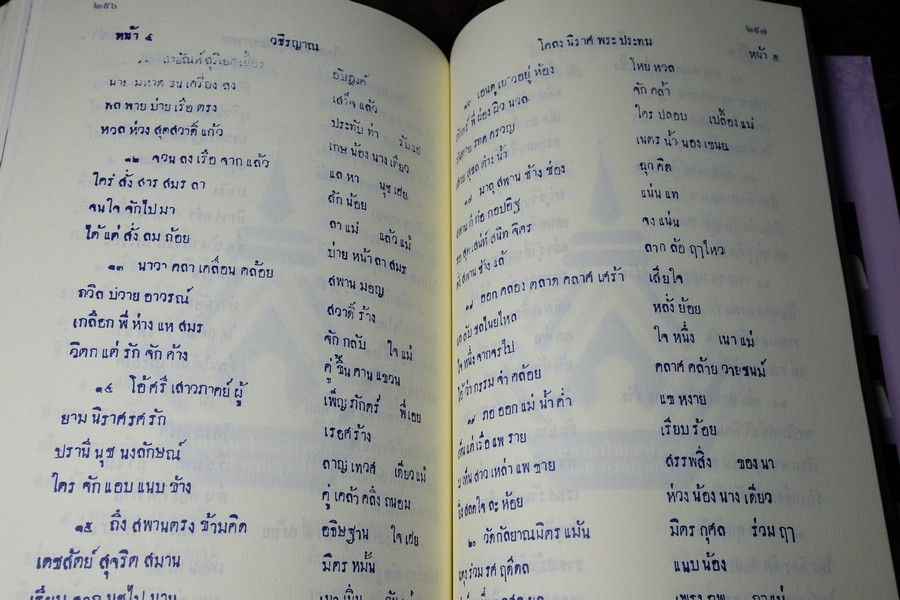 ๒๙๖
หน้า ๔ วชิรญาณ
อัษฎงค์
นาย เครื่อง ลง เสร็จ แล้ว
พล พาย บ่าย เรือ ตรง ประทับ ท่า
หวล ห่วง สุดสวาดิ์ แก้ว เกษ น้อง นาง เดียว
๑๒ จวน ลง เรือ จาก แล้ว แล หา นุช เฮย
ใคร่ สั่ง สาร สมร ลา สัก น้อย
จนใจ จักไป มา ลา แม่ แล้ว แม่
ได้ แต่ สั่ง ลม ถ้อย บ่าย หน้า ลา สมร
๑๓ นาวา คลา เคลื่อน คล้อย สพาน มอญ
ถวิล บ่วาย อาวรณ์ สวาดิ์ ร้าง
เกลือก พี่ ห่าง แห สมร จัก กลับ ใจ แม่
วิตก แต่ รัก จัก ค้าง คู่ ชื่น คาน แขวน
๑๔ โอ้ ศรี เสาวภาคย์ ผู้ เพ็ญ ภักตร์ พี่ เอย
ยาม นิราศ รศ รัก เรอศ ร้าง
ปรานี นุช นงลักษณ์ ลาญ เทวศ เดียว แม่
ใคร จัก แอบ แนบ ข้าง คู่ เคล้า คลึง ถนอม
๑๕ ถึง สพานตรง ข้ามคิด อธิษฐาน ใจ เฮย
เดชสัตย์ สุจริต สมาน มิตร หมั้น
๒๙๗
โคลง นิราศ พระ ประทม หน้า ๕
อยู่ ห้อง โหย หวล
พี่ ผ่อง ผิว นวล จัก คล้ำ
ครวญ ใคร ปลอบ เปลื้อง แม่
ค่าง น้ำ เนตร น้ำ นอง เขนย
๑๗ มาลุ สพาน ช้าง ช่อง ฉุก คิด
ก็ ก่อ กอปอิฐ แน่น แท
สุด เสน่ห์ สนิท จิตร จง แน่น
สพาน ช้าง แล้ ลาก ล้อ ฤๅไหว
๑๘ ออก คลอง คลาด คลาศ เศร้า เสียใจ
หลั่ง ย้อย
ใจ หนึ่ง จากจร ไป ใจ หนึ่ง เนา แม่
กรรม จำ คล้อย คลาศ คล้าย วายชนม์
๑๙ ภอ ออก แม่ น้ำ ค่ำ แข หงาย
แต่ เรือ แพ ราย เรียบ ร้อย
เห็น สาว เหล่า แพ ขาย สรรพสิ่ง ของ นา
สลดใจ ละ ห้อย ห่วง น้อง นาง เดียว
๒๐ วัดกัลยาณมิตร แม้น มิตร กุศล ร่วม ฤๅ
ร่วม รศ ฤดีดล แนบ น้อง